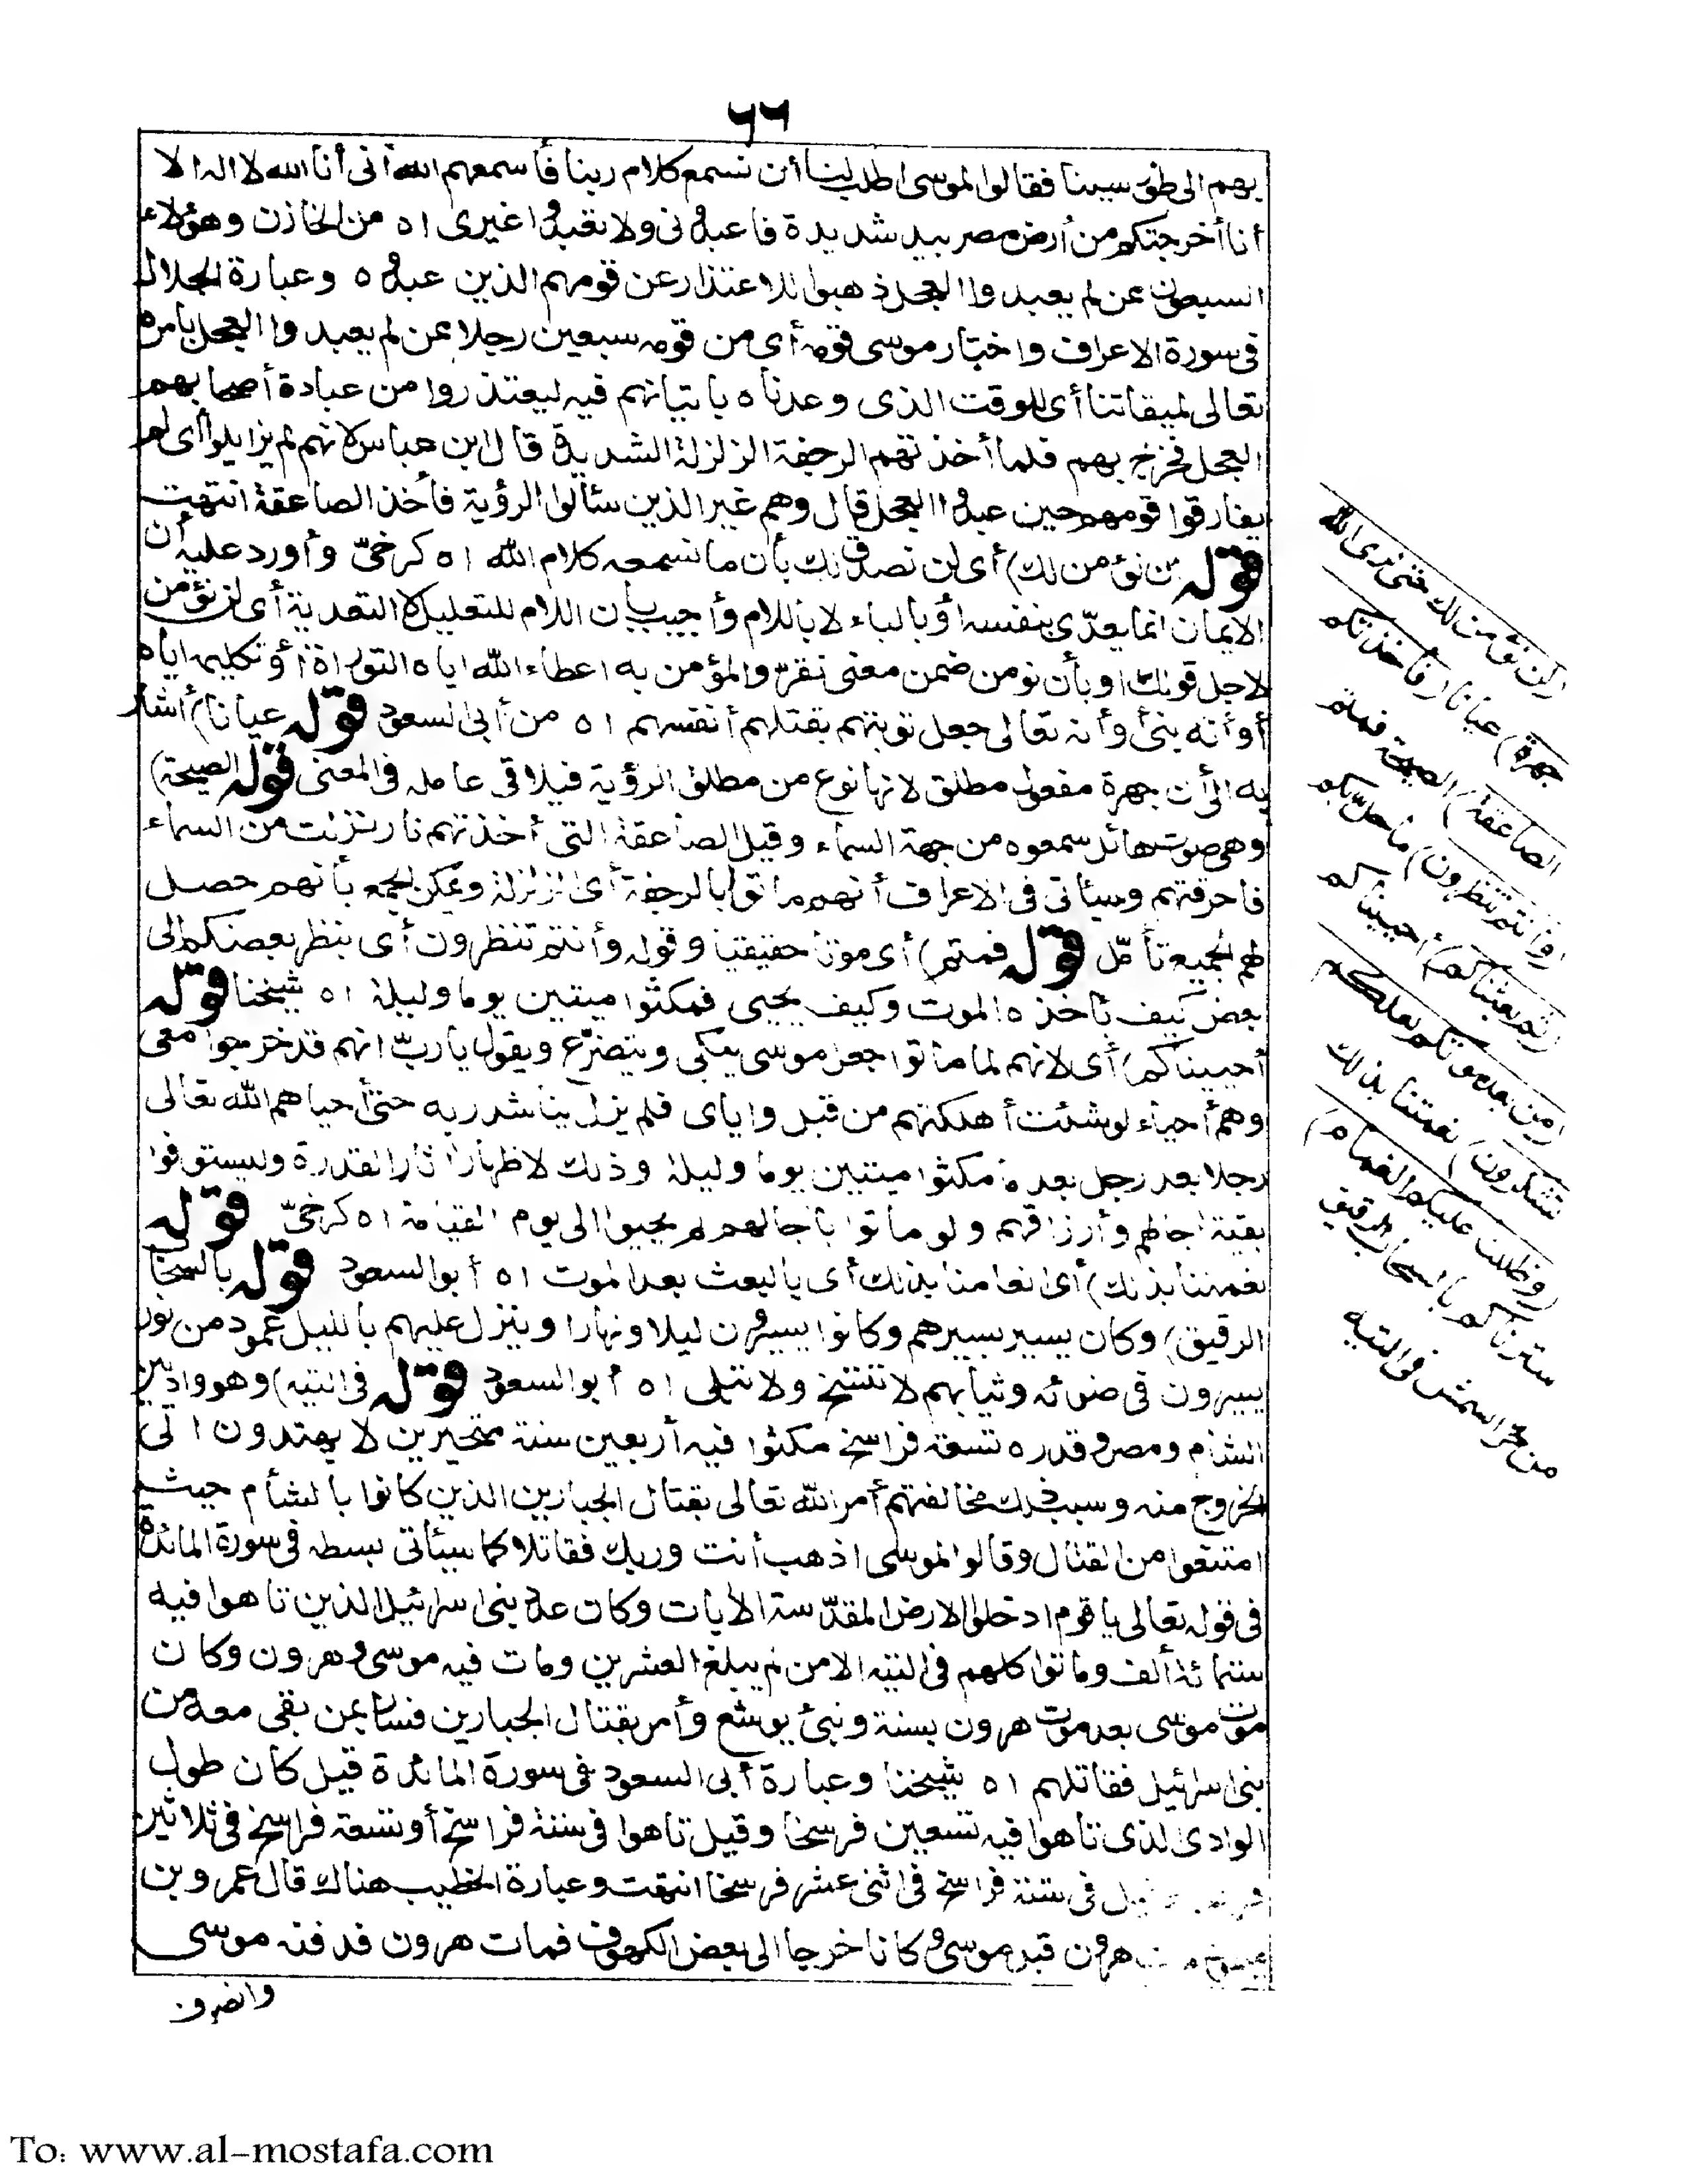 ٦٦
بهم الى طور سينا فقالوا لموسى اطلب لنا أن نسمع كلام ربنا فأسمعهم الله أنى أنا الله لا اله الا
أنا أخرجتكم من أرض مصر بيد شديدة فاعبدونى ولا تعبدوا غيرى اه من الخازن وهؤلاء
السبعون ممن لم يعبدوا العجل ذهبوا للاعتذار عن قومهم الذين عبدوه وعبارة الجلال
فى سورة الاعراف واختار موسى قومه أى من قومه سبعين رجلا ممن لم يعبدوا العجل بأمره
تعالى لميقاتنا أى للوقت الذى وعدناه باتيانهم فيه ليعتذروا من عبادة أصحابهم
العجل فخرج بهم فلما أخذتهم الرجفة الزلزلة الشديدة قال ابن عباس لانهم لم يزايلوا أى لم
يفارقوا قومهم حين عبدوا العجل قال وهم غير الذين سألوا الرؤية فأخذ الصاعقة انتهت
قوله لن نؤمن لك) أى لن نصدقك بأن ما نسمعه كلام الله اه كرخىّ وأورد عليه أن
الايمان انما يعدّى بنفسه أو بالباء لا باللام وأجيب بأن اللام للتعليل لا للتعدية أى لن نؤمن
لاجل قولك أو بأن نؤمن ضمن معنى نقرّ والمؤمن به اعطاء الله اياه التوراة أو تكليمه اياه
أو أنه نبىّ أو أنه تعالى جعل توبتهم بقتلهم أنفسهم اه من أبى السعود قوله عيانا) أشار
به الى أن جهرة مفعول مطلق لانها نوع من مطلق الرؤية فيلاقى عامله فى المعنى قوله الصيحة)
وهى صوت هائل سمعوه من جهة السماء وقيل الصاعقة التى أخذتهم نار نزلت من السماء
فأحرقتهم وسيأتى فى الاعراف أنهم ماتوا بالرجفة أى الزلزلة ويمكن الجمع بأنهم حصل
لهم الجميع تأمّل قوله فمتم) أى موتا حقيقيا وقوله وأنتم تنظرون أى ينظر بعضكم الى
بعض كيف يأخذه الموت وكيف يحيى فمكثوا ميتين يوما وليلة اه شيخنا قوله
أحييناكم) أى لانهم لما ماتوا جعل موسى يبكى ويتضرّع ويقول يا ربّ انهم قد خرجوا معى
وهم أحياء لو شئت أهلكتهم من قبل واياى فلم يزل يناشد ربه حتى أحياهم الله تعالى
رجلا بعد رجل بعد ما مكثوا ميتين يوما وليلة وذلك لاظهار آثار القدرة وليستوفوا
بقية آجالهم وأرزاقهم ولو ماتوا بآجالهم لم يحيوا الى يوم القيامة اه كرخىّ قوله
نعمتنا بذلك) أى انعامنا بذلك أى بالبعث بعد الموت اه أبو السعود قوله بالسحاب
الرقيق) وكان يسير بسيرهم وكانوا يسيرون ليلا ونهارا وينزل عليهم بالليل عمود من نور
يسيرون فى ضوئه وثيابهم لا تتسخ ولا تبلى اه أبو السعود قوله فى التيه) وهو واد بين
الشأم ومصر وقدره تسعة فراسخ مكثوا فيه أربعين سنة متحيرين لا يهتدون الى
الخروج منه وسبب ذلك مخالفتهم أمر الله تعالى بقتال الجبارين الذين كانوا بالشأم حيث
امتنعوا من القتال وقالوا لموسى اذهب أنت وربك فقاتلا كما سيأتى بسطه فى سورة المائدة
فى قوله تعالى يا قوم ادخلوا الارض المقدّسة الآيات وكان عدد بنى اسرائيل الذين تاهوا فيه
ستمائة ألف وماتوا كلهم فى التيه الا من لم يبلغ العشرين ومات فيه موسى وهرون وكان
موت موسى بعد موت هرون بسنة ونبئ يوشع وأمر بقتال الجبارين فسار بمن بقى معه من
بنى اسرائيل فقاتلهم اه شيخنا وعبارة أبى السعود فى سورة المائدة قيل كان طول
الوادى الذى تاهوا فيه تسعين فرسخا وقيل تاهوا فى ستة فراسخ أو تسعة فراسخ فى ثلاثين
فى ستة فراسخ فى اثنى عشر فرسخا انتهت وعبارة الخطيب هناك قال عمرو بن
هرون قبل موسى وكانا خرجا الى بعض الكهوف فمات هرون فدفنه موسى
وانصرف
(لن نؤمن لك حتى نرى الله
جهرة) عيانا (فأخذتكم
الصاعقة) الصيحة فمتم
(وأنتم تنظرون) ما حلّ بكم
(ثم بعثناكم) أحييناكم
(من بعد موتكم لعلكم
تشكرون) نعمتنا بذلك
(وظللنا عليكم الغمام)
سترناكم بالسحاب الرقيق
من حرّ الشمس فى التيه
To: www.al-mostafa.com